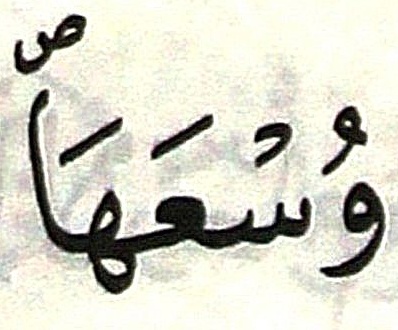 وُسْعَهَاۖ ص